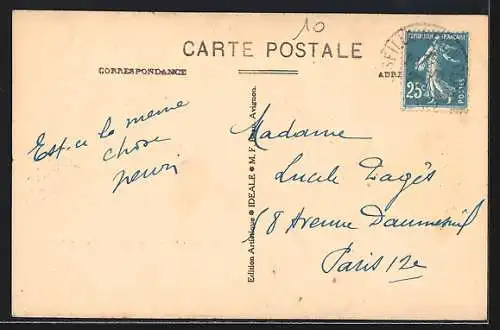 10
CARTE POSTALE
CORRESPONDANCE
ADRE
REPUBLIQUE FRANÇAISE
25c
POSTES
Est-ce la meme
chose
Henri
Edition Artistique ✸ IDEALE ✸ M. F. Avignon.
Madame
Lucile Pagès
68 Avenue Daumesnil
Paris 12e